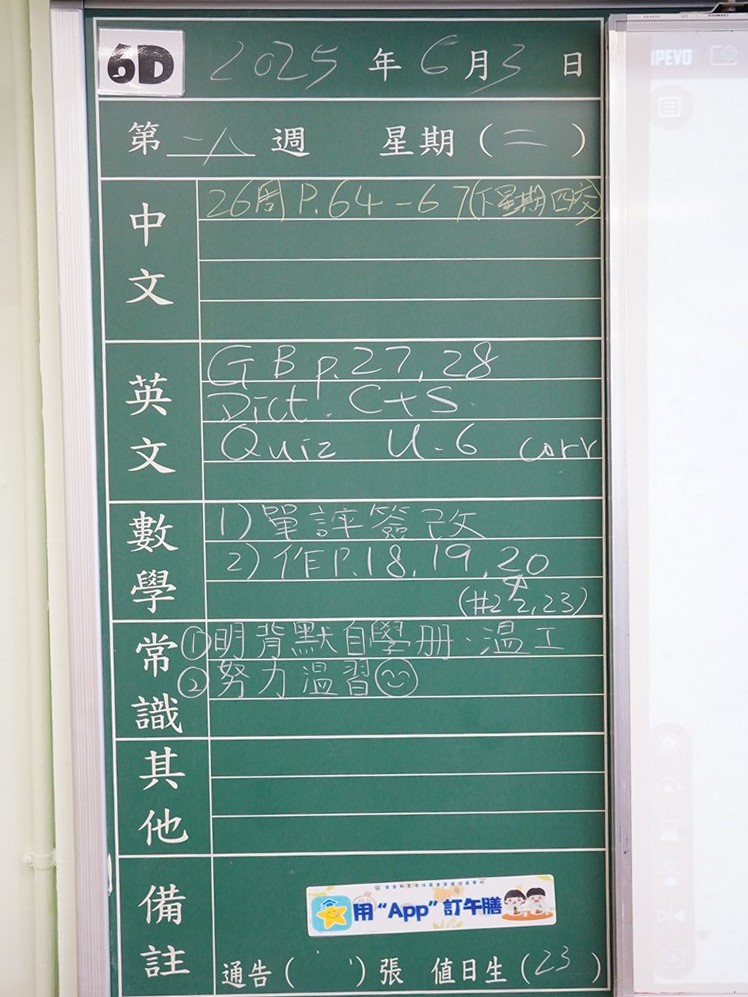 6D 2025年6月3日
第二八週 星期(二)
中文
26周 P.64-67(下星期四交)
英文
GB p.27, 28
Dict. C+S.
Quiz U.6 corr
數學
1) 單評簽改
2) 作P.18, 19, 20
(#22, 23)
常識
① 明背默自學册、溫工
② 努力溫習
其他
備註
用“App”訂午膳
通告( )張 值日生(23)
IPEVO